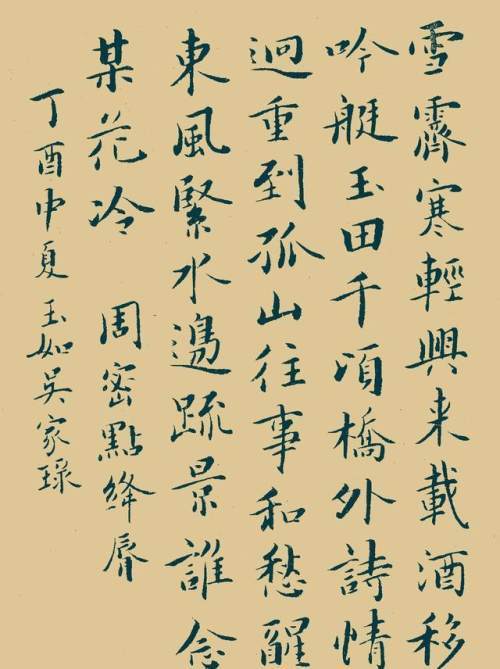 雪霽寒輕興来載酒移
吟艇玉田千頃橋外詩情
迥重到孤山往事和愁醒
東風緊水邊疏景誰念
某花冷 周密點絳唇
丁酉中夏玉如吳家琭